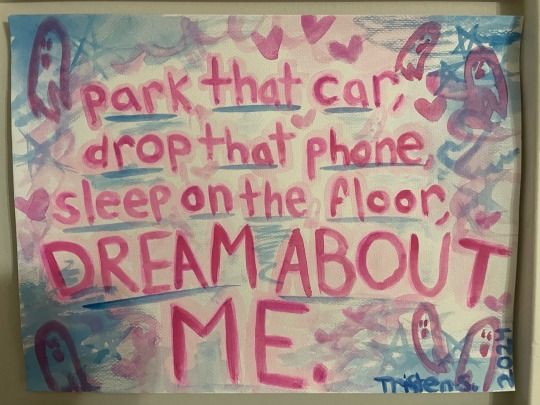 park that car,
drop that phone,
sleep on the floor,
DREAM ABOUT
ME.
Tristen S. 2024